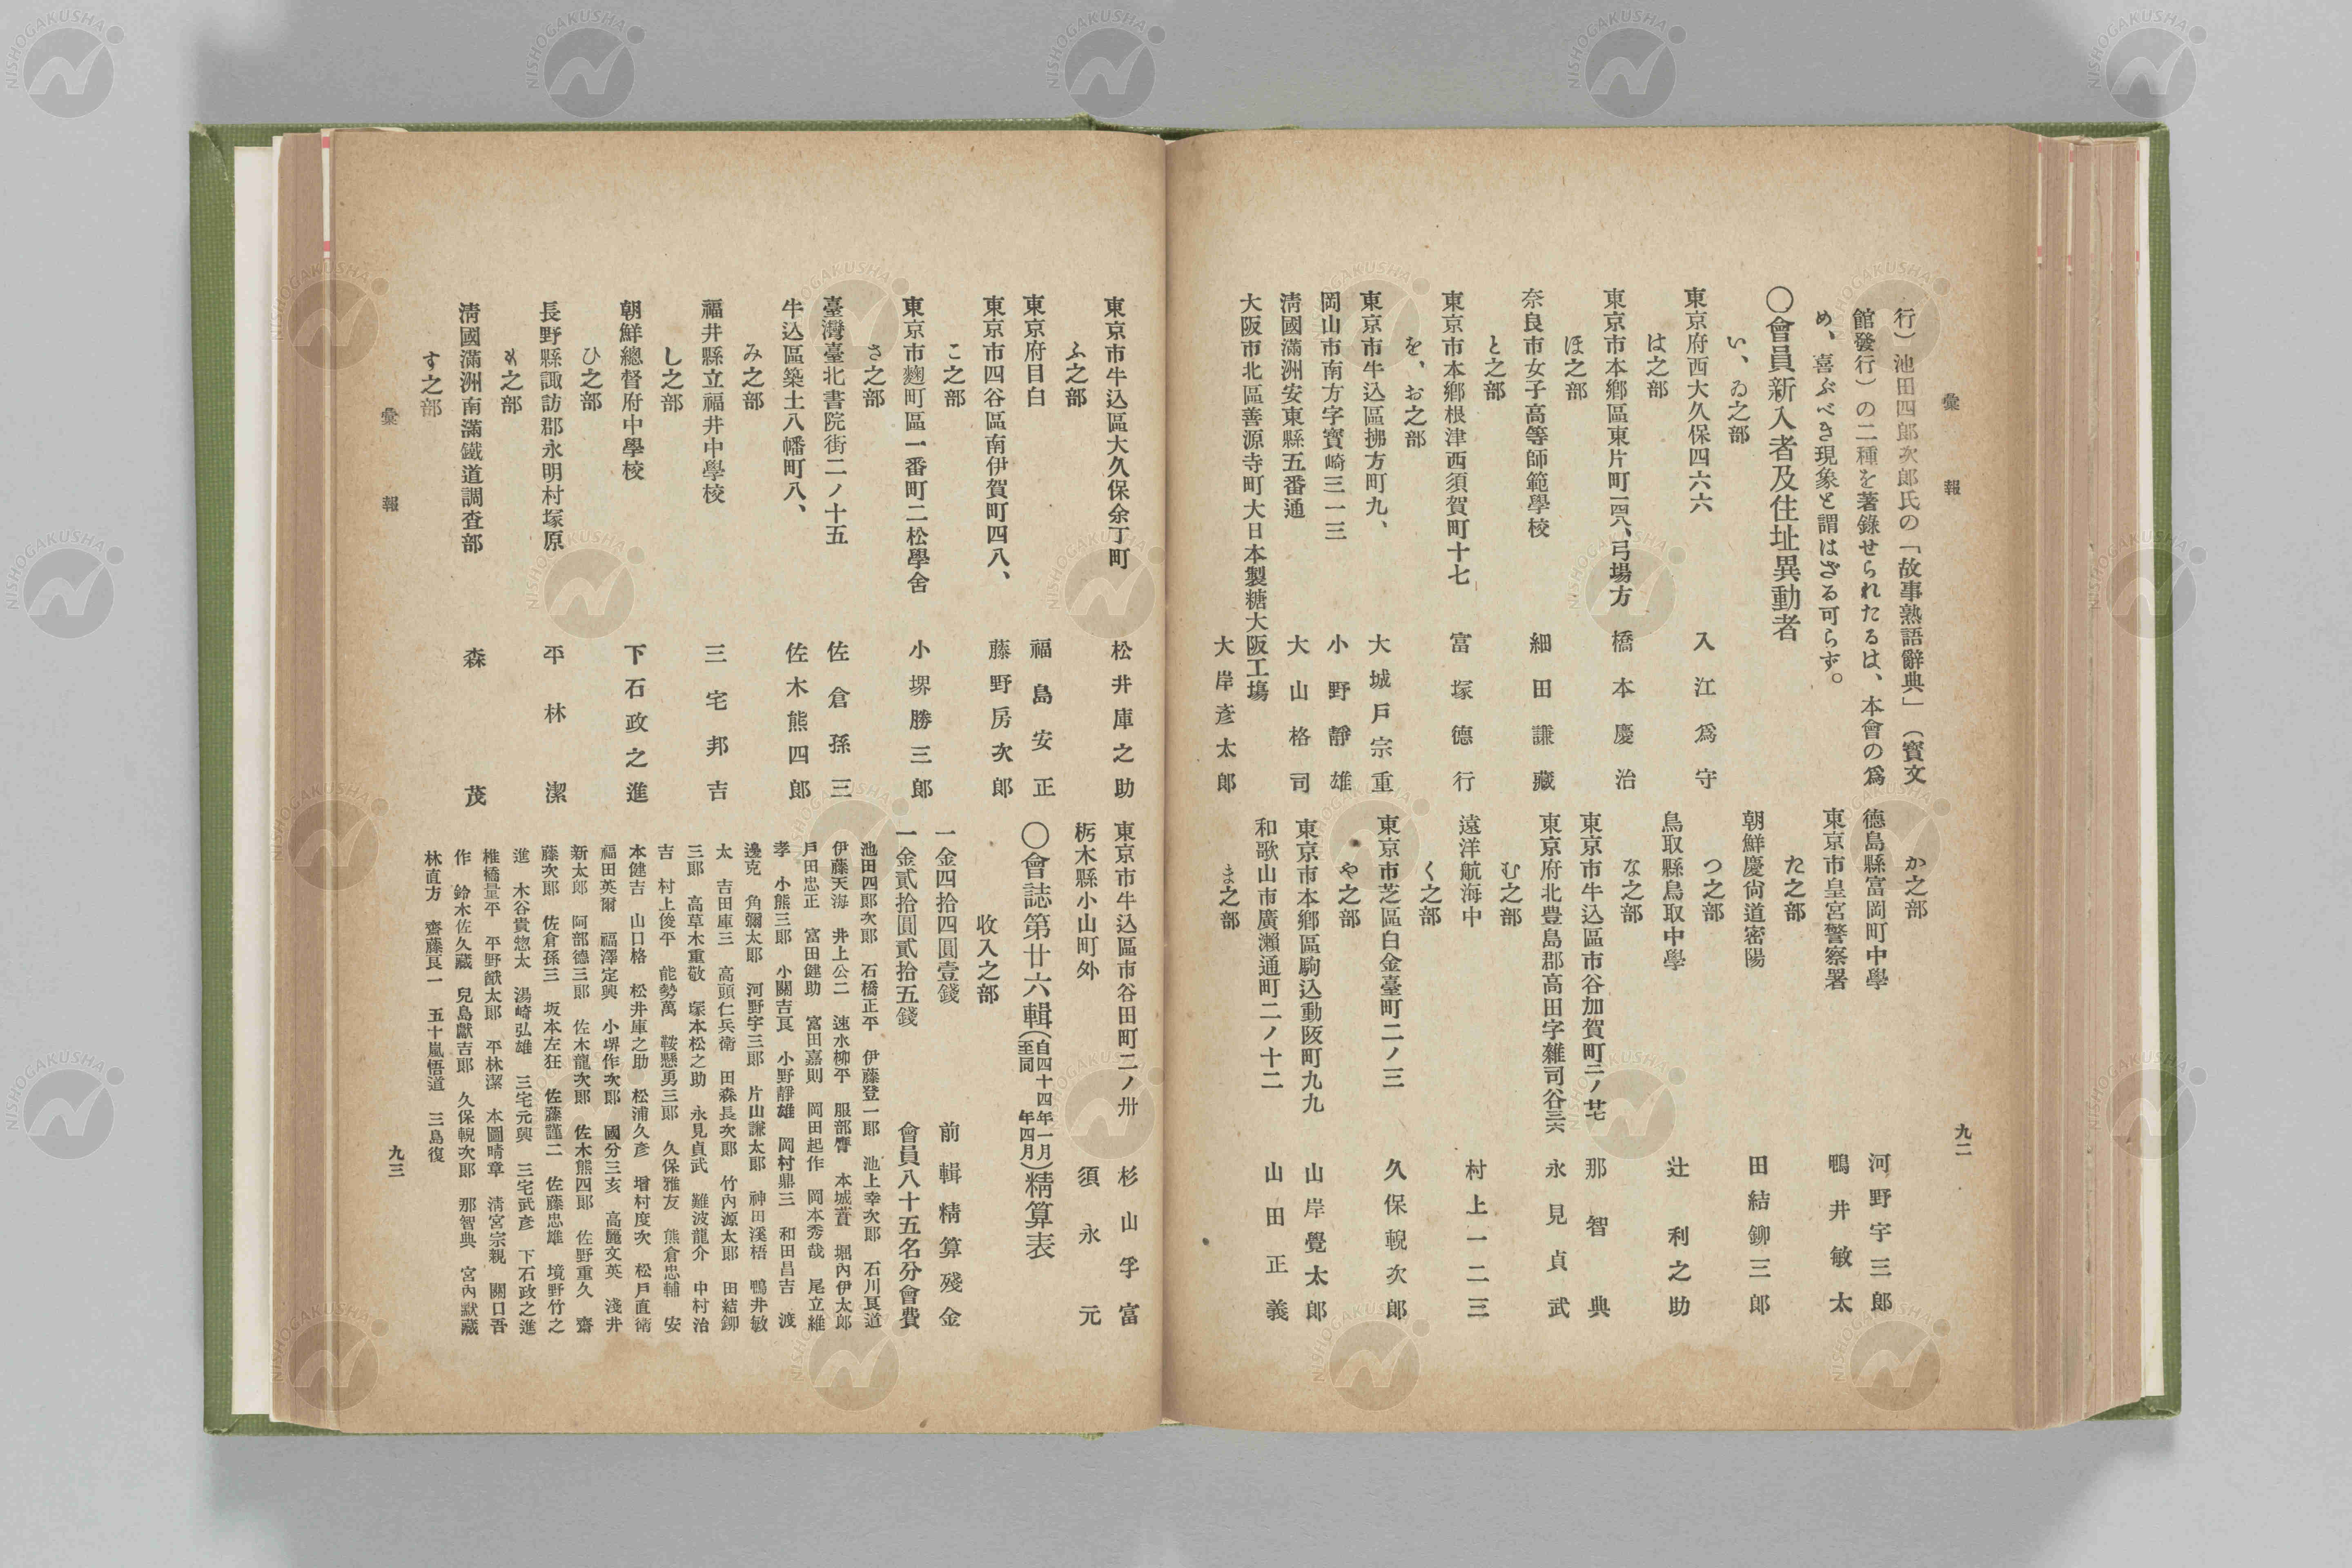 彙報
九二
行）池田四郎次郎氏の「故事熟語辭典」（寳文
館發行）の二種を著錄せられたるは、本會の爲
め、喜ぶべき現象と謂はざる可らず。
〇會員新入者及住址異動者
い、ゐ之部
東京府西大久保四六六 入江爲守
は之部
東京市本鄕區東片町一四八、弓場方 橋本慶治
ほ之部
奈良市女子高等師範學校 細田謙藏
と之部
東京市本鄕根津西須賀町十七 富塚德行
を、お之部
東京市牛込區拂方町九、 大城戸宗重
岡山市南方字寳崎三一三 小野靜雄
淸國滿洲安東縣五番通 大山格司
大阪市北區善源寺町大日本製糖大阪工塲
大岸彥太郎
か之部
德島縣富岡町中學 河野宇三郎
東京市皇宮警察署 鴨井敏太
た之部
朝鮮慶尙道密陽 田結鉚三郎
つ之部
鳥取縣鳥取中學 辻利之助
な之部
東京市牛込區市谷加賀町二ノ廿 那智典
東京府北豊島郡高田字雜司谷三六 永見貞武
む之部
遠洋航海中 村上一二三
く之部
東京市芝區白金臺町二ノ三 久保輗次郎
や之部
東京市本鄕區駒込動阪町九九 山岸覺太郎
和歌山市廣瀨通町二ノ十二 山田正義
ま之部
東京市牛込區大久保余丁町 松井庫之助
ふ之部
東京府目白 福島安正
東京市四谷區南伊賀町四八、 藤野房次郎
こ之部
東京市麴町區一番町二松學舍 小堺勝三郎
さ之部
臺灣臺北書院街二ノ十五 佐倉孫三
牛込區築土八幡町八、 佐木熊四郎
み之部
福井縣立福井中學校 三宅邦吉
し之部
朝鮮總督府中學校 下石政之進
ひ之部
長野縣諏訪郡永明村塚原 平林潔
も之部
淸國滿洲南滿鐵道調査部 森茂
す之部
東京市牛込區市谷田町二ノ卅 杉山孚富
栃木縣小山町外 須永元
〇會誌第廿六輯（自四十四年一月至同年四月）精算表
收入之部
一金四拾四圓壹錢 前輯精算殘金
一金貳拾圓貳拾五錢 會員八十五名分會費
池田四郎次郎 石橋正平 伊藤登一郎 池上幸次郎 石川良道
伊藤天海 井上公二 速水柳平 服部膺 本城蕡 堀內伊太郎
戸田忠正 富田健助 富田嘉則 岡田起作 岡本秀哉 尾立維
孝 小熊三郎 小關吉良 小野靜雄 岡村鼎三 和田昌吉 渡
邊克 角彌太郎 河野宇三郎 片山謙太郎 神田溪梧 鴨井敏
太 吉田庫三 高頭仁兵衛 田森長次郎 竹內源太郎 田結鉚
三郎 高草木重敬 塚本松之助 永見貞武 難波龍介 中村治
吉 村上俊平 能勢萬 鞍懸勇三郎 久保雅友 熊倉忠輔 安
本健吉 山口格 松井庫之助 松浦久彥 增村度次 松戸直衛
福田英爾 福澤定興 小堺作次郎 國分三亥 高麗文英 淺井
新太郎 阿部德三郎 佐木龍次郎 佐木熊四郎 佐野重久 齋
藤次郎 佐倉孫三 坂本左狂 佐藤謹二 佐藤忠雄 境野竹之
進 木谷貴惣太 湯崎弘雄 三宅元興 三宅武彥 下石政之進
椎橋量平 平野猷太郎 平林潔 本圖晴章 淸宮宗親 關口吾
作 鈴木佐久藏 兒島獻吉郎 久保輗次郎 那智典 宮內默藏
林直方 齋藤良一 五十嵐悟道 三島復
彙報
九三